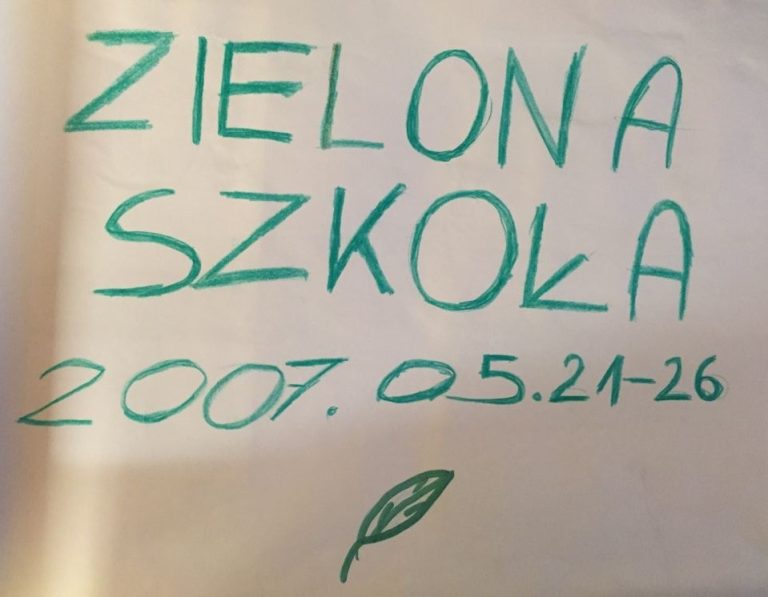 ZIELONA
SZKOŁA
2007.05.21-26